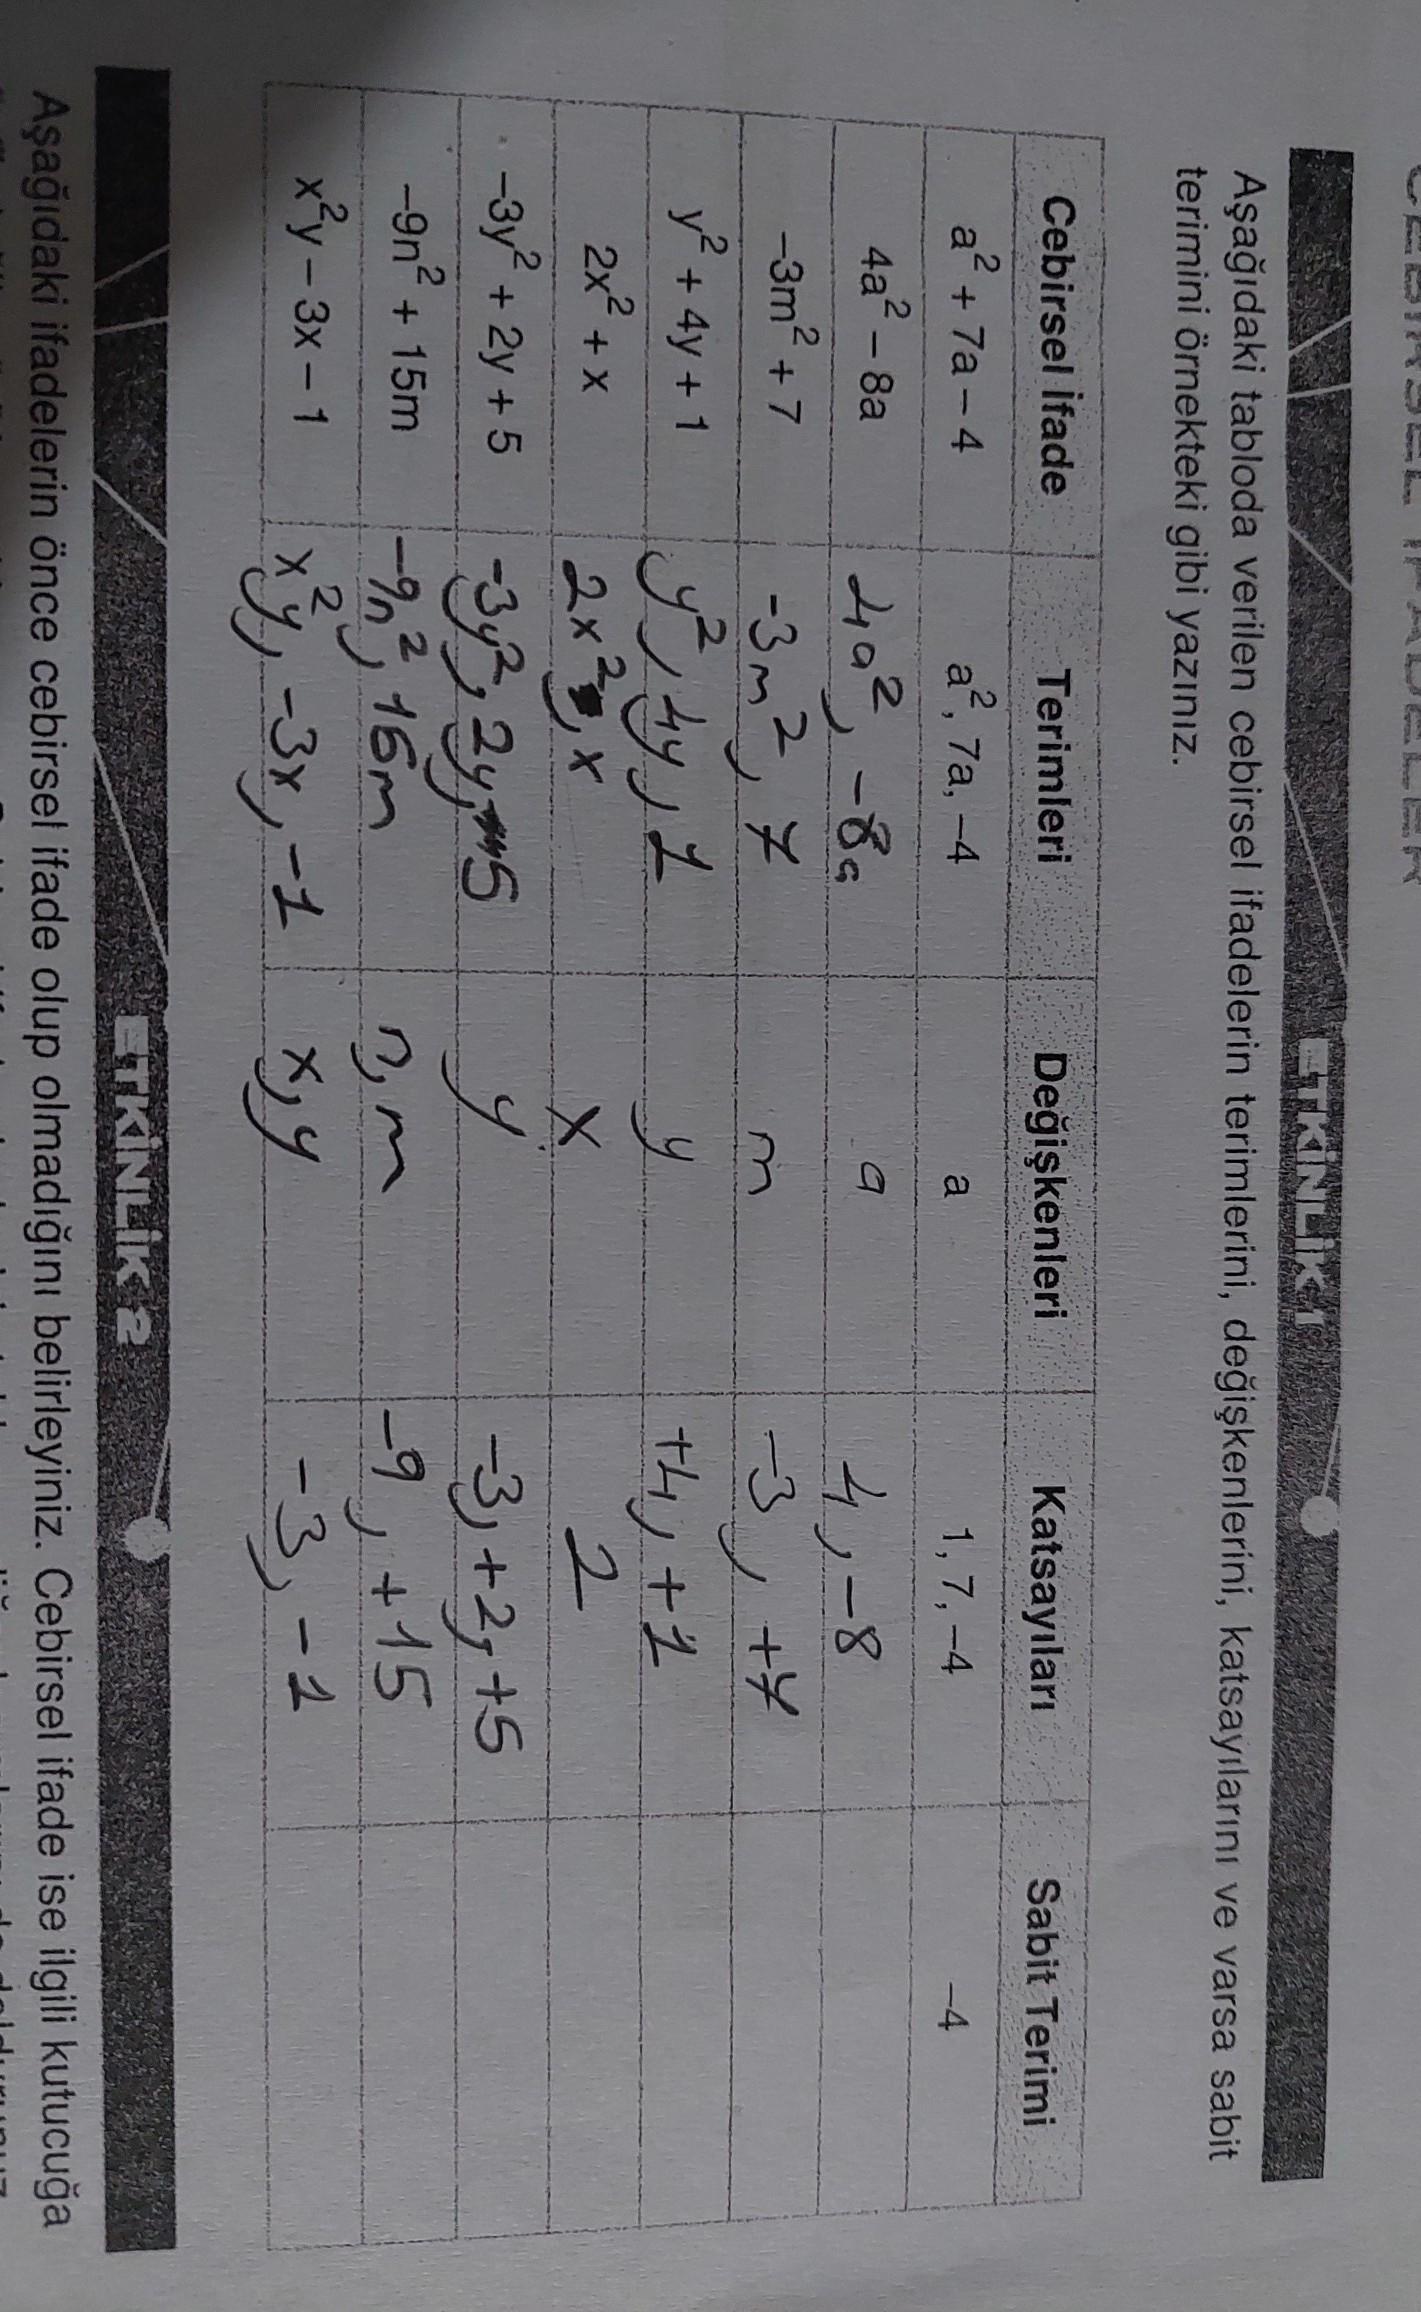 CEBİRSEL İFADELER
ETKİNLİK 1
Aşağıdaki tabloda verilen cebirsel ifadelerin terimlerini, değişkenlerini, katsayılarını ve varsa sabit
terimini örnekteki gibi yazınız.
Cebirsel İfade Terimleri Değişkenleri Katsayıları Sabit Terimi
a² + 7a – 4 a², 7a, –4 a 1, 7, –4 –4
4a² – 8a 4a², -8a a 4, -8
–3m² + 7 -3m², 7 m -3, +7
y² + 4y + 1 y², 4y, 1 y +4, +1
2x² + x 2x², x x 2
–3y² + 2y + 5 -3y², 2y, 5 y -3, +2, +5
–9n² + 15m -9n², 15m n, m -9, +15
x²y – 3x – 1 x²y, -3x, -1 x, y -3, -1
ETKİNLİK 2
Aşağıdaki ifadelerin önce cebirsel ifade olup olmadığını belirleyiniz. Cebirsel ifade ise ilgili kutucuğa